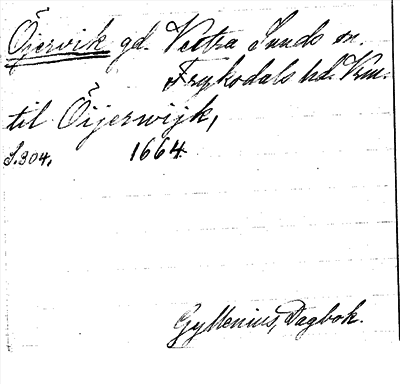 Öjervik gd. Västra Sunds sn.
Fryksdals hd. Vrm.
til Öijerwijk,
S. 304. 1664
Gyllenius, Dagbok.